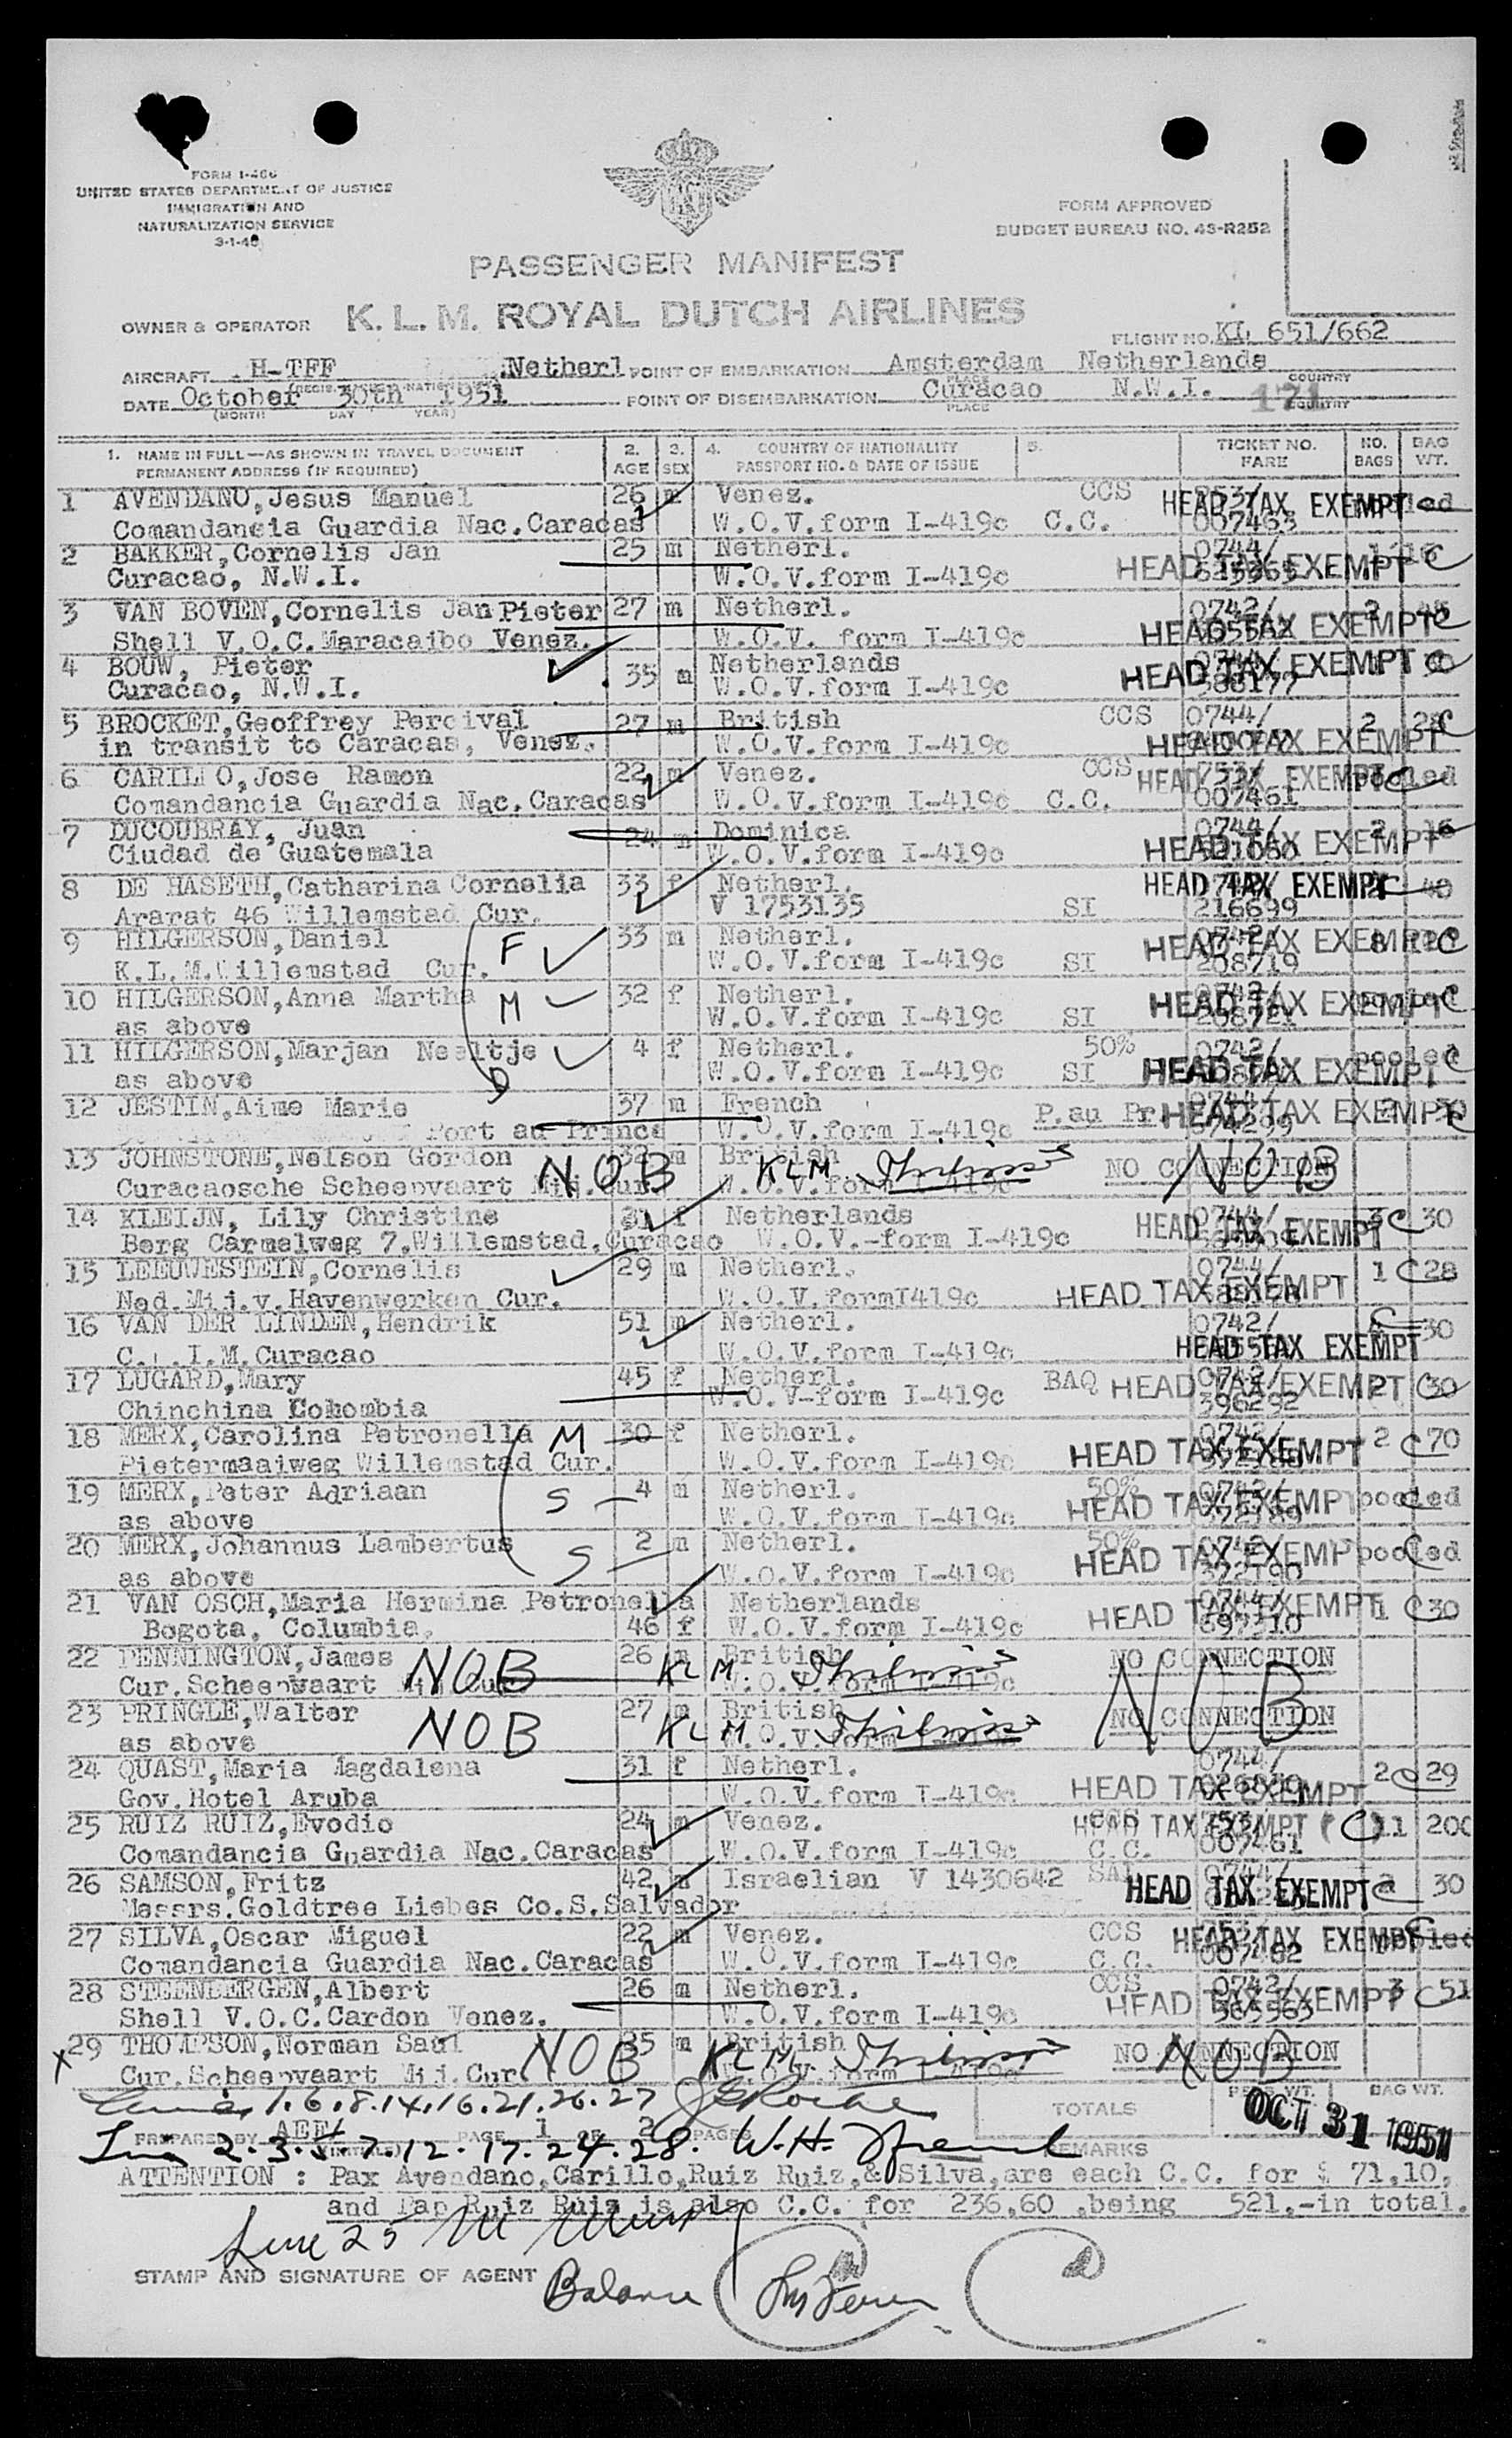 FORM I-466
UNITED STATES DEPARTMENT OF JUSTICE
IMMIGRATION AND
NATURALIZATION SERVICE
3-1-48
FORM APPROVED
BUDGET BUREAU NO. 43-R252
PASSENGER MANIFEST
OWNER & OPERATOR K. L. M. ROYAL DUTCH AIRLINES
FLIGHT NO. KL 651/662
AIRCRAFT H-TFF Netherl. POINT OF EMBARKATION Amsterdam Netherlands
DATE October 30th 1951 POINT OF DISEMBARKATION Curacao N.W.I. 171
(MONTH DAY YEAR) PLACE COUNTRY
1. NAME IN FULL—AS SHOWN IN TRAVEL DOCUMENT 2. 3. 4. COUNTRY OF NATIONALITY 5. TICKET NO. NO. BAG
PERMANENT ADDRESS (IF REQUIRED) AGE SEX PASSPORT NO. & DATE OF ISSUE FARE BAGS WT.
1 AVENDANO, Jesus Manuel 26 m Venez. CCS HEAD TAX EXEMPT
Comandancia Guardia Nac. Caracas W.O.V. form I-419c C.C. 007463
2 BAKKER, Cornelis Jan 25 m Netherl. 0744/
Curacao, N.W.I. W.O.V. form I-419c HEAD TAX EXEMPT
3 VAN BOVEN, Cornelis Jan Pieter 27 m Netherl. 0742/
Shell V.O.C. Maracaibo Venez. W.O.V. form I-419c HEAD TAX EXEMPT
4 BOUW, Pieter 35 m Netherlands 0744/
Curacao, N.W.I. W.O.V. form I-419c HEAD TAX EXEMPT
5 BROCKET, Geoffrey Percival 27 m British CCS 0744/ 2
in transit to Caracas, Venez. W.O.V. form I-419c HEAD TAX EXEMPT
6 CARILLO, Jose Ramon 22 m Venez. CCS HEAD TAX EXEMPT pooled
Comandancia Guardia Nac. Caracas W.O.V. form I-419c C.C. 007461
7 DUCOUBRAY, Juan 24 m Dominica 0744/ 2 16
Ciudad de Guatemala W.O.V. form I-419c HEAD TAX EXEMPT
8 DE HASETH, Catharina Cornelia 33 f Netherl. HEAD TAX EXEMPT 40
Ararat 46 Willemstad Cur. V 1753135 SI 216699
9 HILGERSON, Daniel F 33 m Netherl. HEAD TAX EXEMPT 8
K.L.M. Willemstad Cur. W.O.V. form I-419c SI 208719
10 HILGERSON, Anna Martha M 32 f Netherl. 0742/
as above W.O.V. form I-419c SI HEAD TAX EXEMPT
11 HILGERSON, Marjan Neeltje 4 f Netherl. 50% 0742/ pooled
as above D W.O.V. form I-419c SI HEAD TAX EXEMPT
12 JESTIN, Aime Marie 37 m French 0744/
Port au Prince W.O.V. form I-419c P. au Pr. HEAD TAX EXEMPT
13 JOHNSTONE, Nelson Gordon NOB 32 m British KLM NO CONNECTION NOB
Curacaosche Scheepvaart Mij. Cur. W.O.V. form I-419c
14 KLEIJN, Lily Christine 31 f Netherlands 0744/ 3 C 30
Berg Carmelweg 7, Willemstad, Curacao W.O.V.-form I-419c HEAD TAX EXEMPT
15 LEEUWESTEIN, Cornelis 29 m Netherl. 0744/ 1 C 28
Ned. Mij. v. Havenwerken Cur. W.O.V. form I419c HEAD TAX EXEMPT
16 VAN DER LINDEN, Hendrik 51 m Netherl. 0742/ 30
C.P.I.M. Curacao W.O.V. form I-419c HEAD TAX EXEMPT
17 LUGARD, Mary 45 f Netherl. BAQ 0742/ HEAD TAX EXEMPT 2 C 30
Chinchina Colombia W.O.V-form I-419c 396292
18 MERX, Carolina Petronella M 30 f Netherl. 0742/ 2 C 70
Pietermaaiweg Willemstad Cur. W.O.V. form I-419c HEAD TAX EXEMPT
19 MERX, Peter Adriaan S 4 m Netherl. 50% 0742/ pooled
as above W.O.V. form I-419c HEAD TAX EXEMPT 372189
20 MERX, Johannus Lambertus S 2 m Netherl. 50% 0742/ pooled
as above W.O.V. form I-419c HEAD TAX EXEMPT 372190
21 VAN OSCH, Maria Hermina Petronella Netherlands 0744/ 1 C 30
Bogota, Columbia. 46 f W.O.V. form I-419c HEAD TAX EXEMPT 697310
22 PENNINGTON, James NOB 26 m British KLM NO CONNECTION NOB
Cur. Scheepvaart Mij. Cur. W.O.V. form I-419c
23 PRINGLE, Walter NOB 27 m British KLM NO CONNECTION
as above W.O.V. form I-419c
24 QUAST, Maria Magdalena 31 f Netherl. 0744/ 2 C 29
Gov. Hotel Aruba W.O.V. form I-419c HEAD TAX EXEMPT
25 RUIZ RUIZ, Evodio 24 m Venez. CCS HEAD TAX EXEMPT C 11 200
Comandancia Guardia Nac. Caracas W.O.V. form I-419c C.C. 007461
26 SAMSON, Fritz 42 m Israelian V 1430642 SAL 0744/ HEAD TAX EXEMPT 30
Messrs. Goldtree Liebes Co. S. Salvador
27 SILVA, Oscar Miguel 22 m Venez. CCS HEAD TAX EXEMPT pooled
Comandancia Guardia Nac. Caracas W.O.V. form I-419c C.C. 007462
28 STEENBERGEN, Albert 26 m Netherl. CCS 0742/ 3 C 51
Shell V.O.C. Cardon Venez. W.O.V. form I-419c HEAD TAX EXEMPT 365563
x 29 THOMPSON, Norman Saul NOB 35 m British KLM NO CONNECTION NOB
Cur. Scheepvaart Mij. Cur. W.O.V. form I-419c
1.6.8.14.16.21.26.27
TOTALS BAG WT.
OCT 31 1951
PREPARED BY AEE/ PAGE 1 OF 2 PAGES
2.3.5.7.12.17.24.28. W.H. REMARKS
ATTENTION : Pax Avendano, Carillo, Ruiz Ruiz, & Silva, are each C.C. for $ 71,10,
and Pap Ruiz Ruiz is also C.C. for 236,60 ,being 521,-in total.
Line 25
STAMP AND SIGNATURE OF AGENT Balance